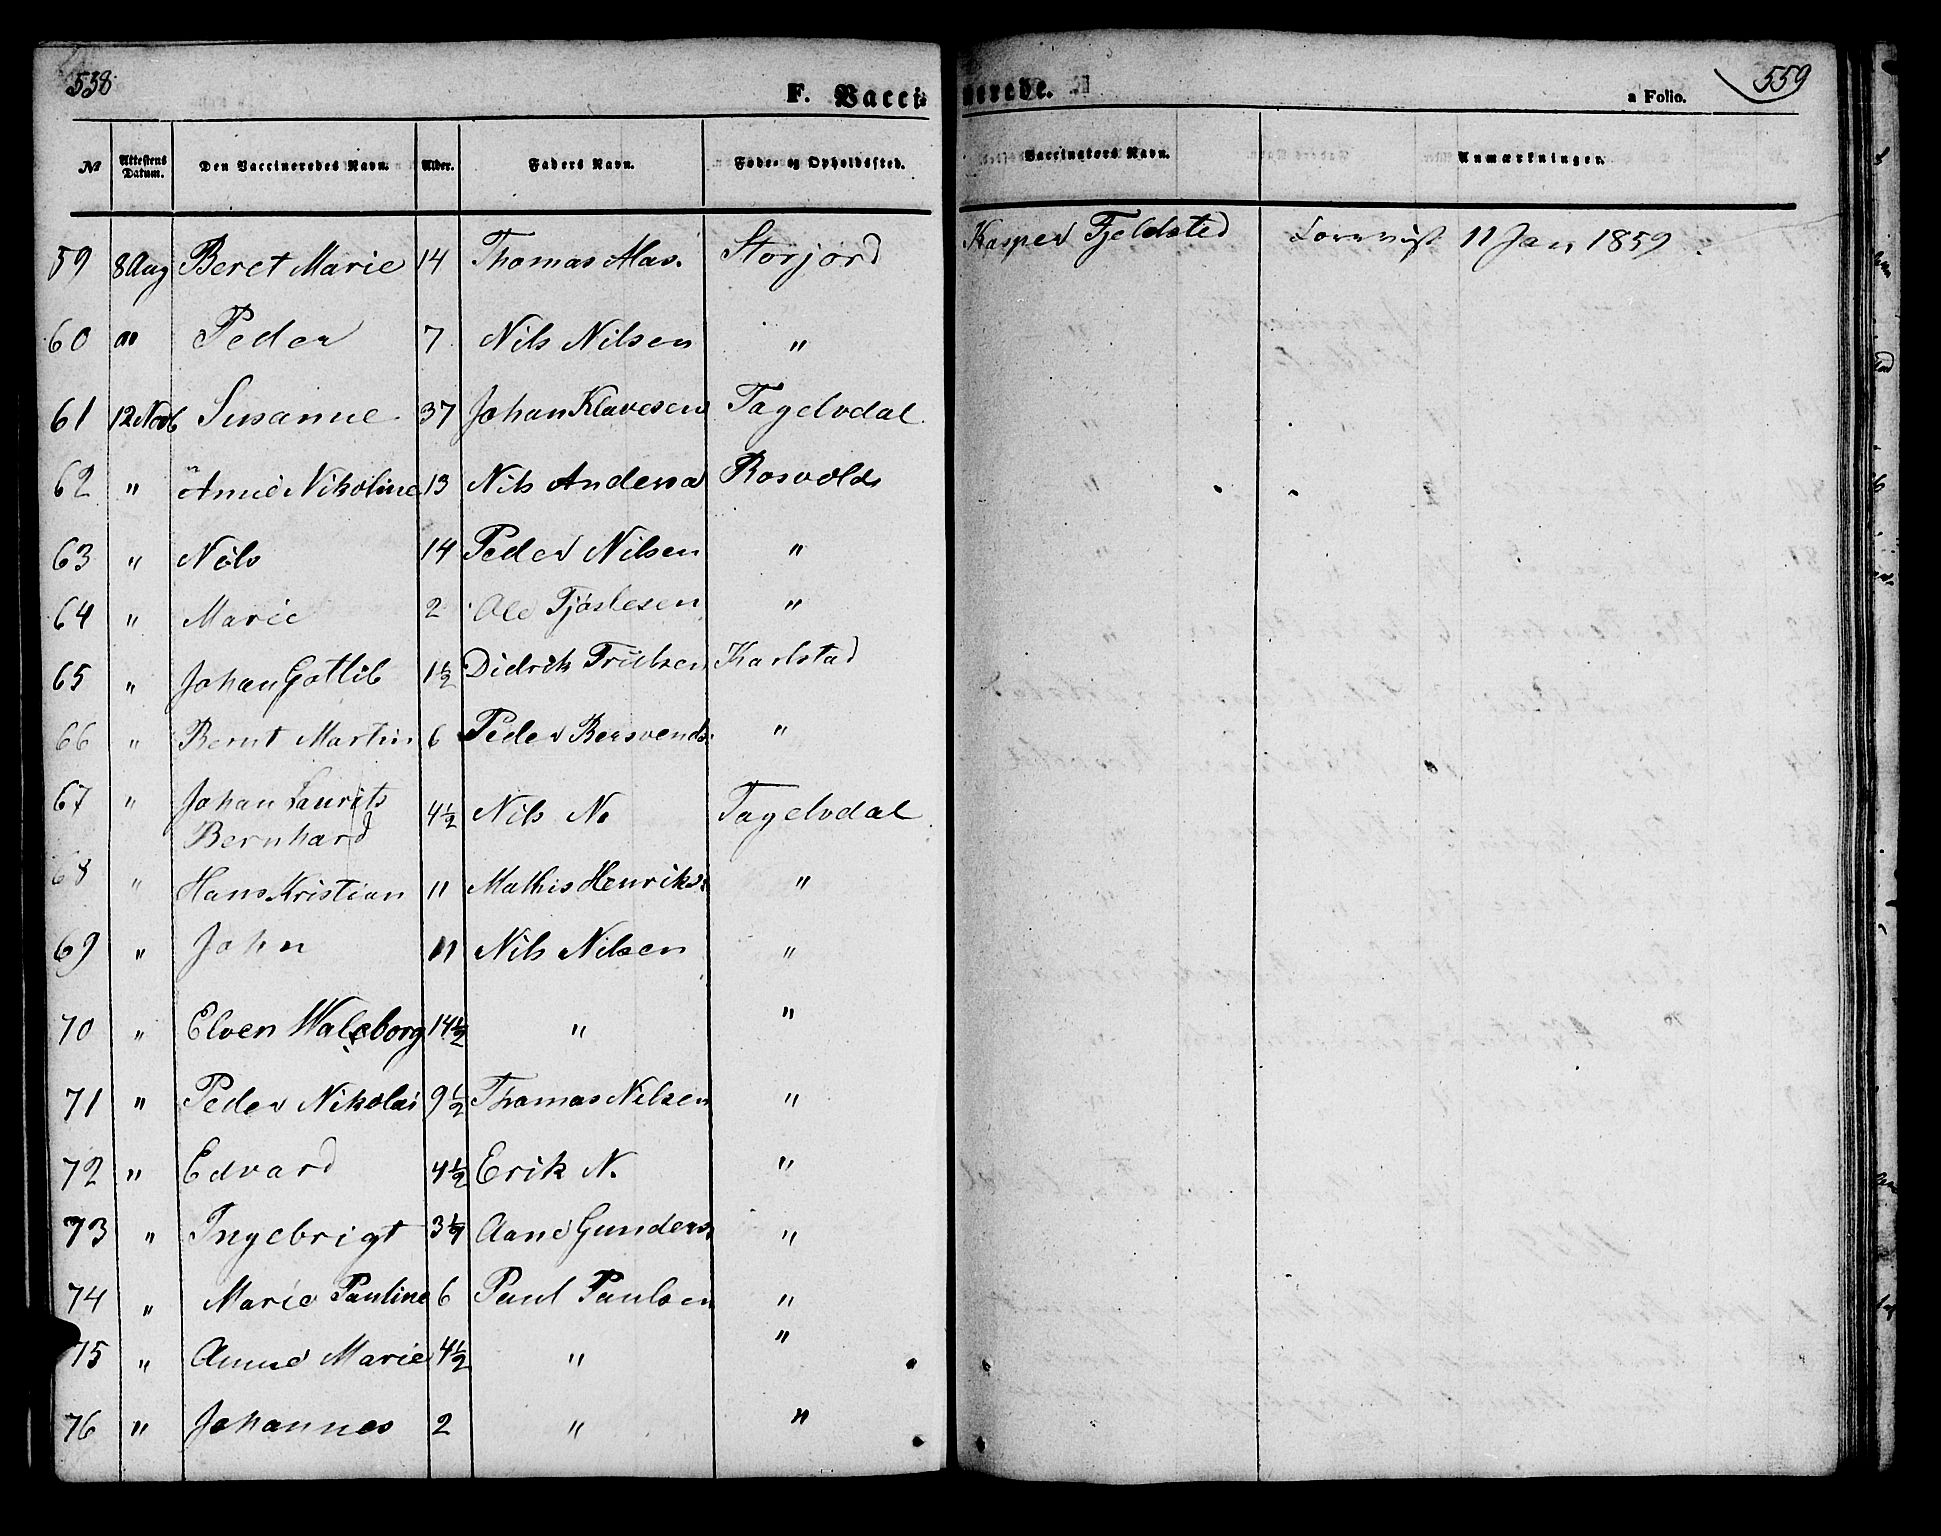 538
F. Vacci-
nerede.
a Folio.
559
№ Attestens Datum. Den Vaccineredes Navn. Alder. Faders Navn. Føde- og Opholdssted. Vaccinators Navn. Anmærkninger.
59 8 Aug Beret Marie 14 Thomas Mas. Storjord Kasper Fjeldsted 11 Jan 1859
60 " Peder 7 Nils Nilsen "
61 12 Novb Susanne 37 Johan Klavesen Tagelvdal
62 " Anne Nikoline 13 Nils Anders Rosvold
63 " Nils 14 Peder Nilsen "
64 " Marie 2 Ole "
65 " Johan Gotlib 1½ Didrik Karlstad
66 " Bernt Martin 6 Peder Bersvends. "
67 " Johan Laurits
Bernhard 4½ Nils N. Tagelvdal
68 " Hans Kristian 11 Mathis Henriks. "
69 " John 11 Nils Nilsen "
70 " Elven Walborg 14½ " "
71 " Peder Nikolai 9½ Thomas Nilsen "
72 " Edvard 4½ Erik N. "
73 " Ingebrigt Aane Gunders "
74 " Marie Pauline 6 Paul Paulsen "
75 " Anne Marie 4½ " "
76 " Johannes 2 " "